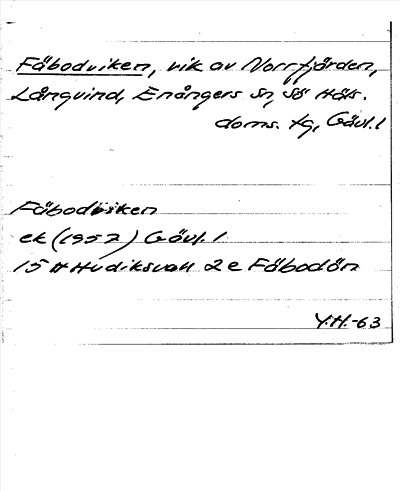 Fäbodviken, vik av Norrfjärden,
Långvind, Enångers sn, sö Häls.
doms. tg, Gävl. l
Fäbodviken
ek (1957) Gävl. l
15 H Hudiksvall 2 e Fäbodön
Y.H.-63